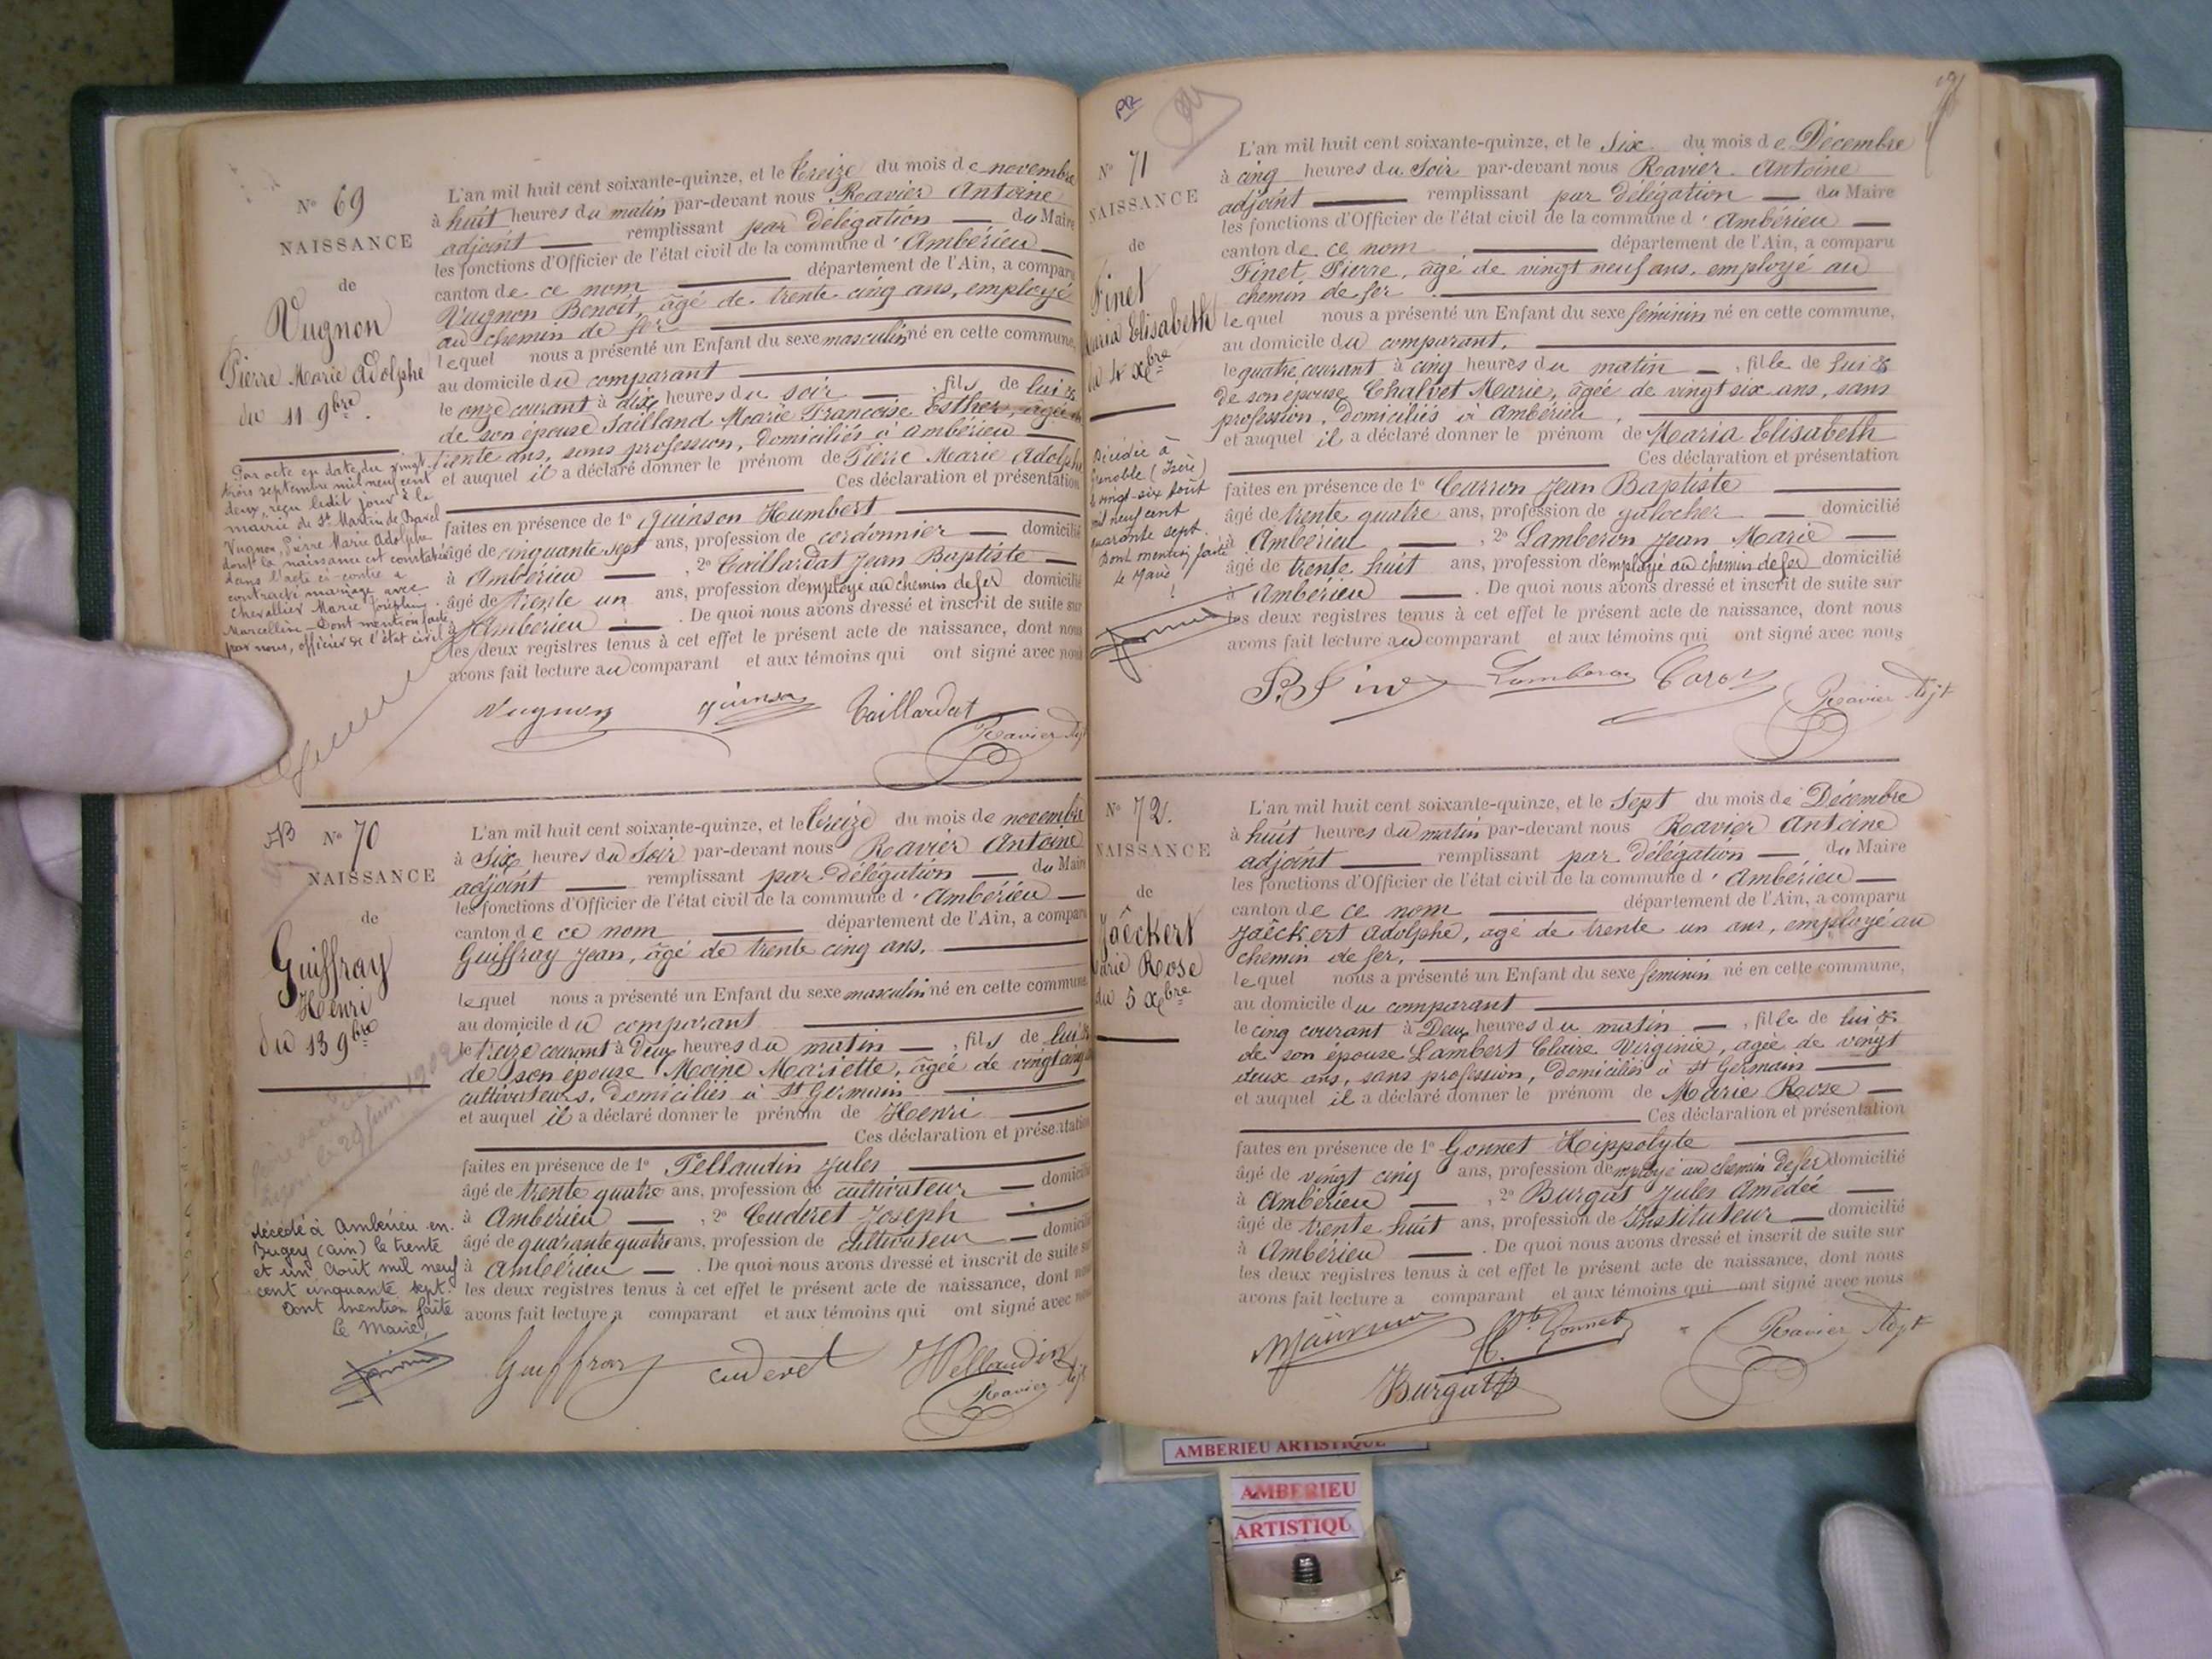 N° 69
NAISSANCE
de
Vugnon
Pierre Marie Adolphe
du 11 9bre.
Par acte en date du vingt
trois septembre mil neuf cent
deux, reçu ledit jour à la
mairie de St Martin de Bavel
Vugnon, Pierre Marie Adolphe
dont la naissance est constatée
dans l'acte ci-contre a
contracté mariage avec
Chevallier Marie Joséphine
Marcelline - Dont mention faite
par nous, officier de l'état civil
L'an mil huit cent soixante-quinze, et le treize du mois de novembre
à huit heures du matin par-devant nous Ravier Antoine
adjoint remplissant par délégation du Maire
les fonctions d'Officier de l'état civil de la commune d'Ambérieu
canton de ce nom département de l'Ain, a comparu
Vugnon Benoît, âgé de trente cinq ans, employé
au chemin de fer
lequel nous a présenté un Enfant du sexe masculin né en cette commune,
au domicile du comparant
le onze courant à dix heures du soir, fils de lui &
de son épouse Sailland Marie Françoise Esther, agée de
trente ans, sans profession, domiciliés à Ambérieu
et auquel il a déclaré donner le prénom de Pierre Marie Adolphe
Ces déclaration et présentation
faites en présence de 1° Guinson Humbert
âgé de cinquante sept ans, profession de cordonnier domicilié
à Ambérieu, 2° Taillardat Jean Baptiste
âgé de trente un ans, profession d'employé au chemin de fer domicilié
à Ambérieu. De quoi nous avons dressé et inscrit de suite sur
les deux registres tenus à cet effet le présent acte de naissance, dont nous
avons fait lecture au comparant et aux témoins qui ont signé avec nous
Vugnon Guinson Taillardat
Ravier Adjt
N° 70
NAISSANCE
de
Guiffray
Henri
du 13 9bre
le 29 juin 1902
décédé à Ambérieu-en-
Bugey (Ain) le trente
et un Août mil neuf
cent cinquante sept.
Dont mention faite
Le Maire,
L'an mil huit cent soixante-quinze, et le treize du mois de novembre
à Six heures du Soir par-devant nous Ravier Antoine
adjoint remplissant par délégation du Maire
les fonctions d'Officier de l'état civil de la commune d'Ambérieu
canton de ce nom département de l'Ain, a comparu
Guiffray Jean, âgé de trente cinq ans,
lequel nous a présenté un Enfant du sexe masculin né en cette commune,
au domicile du comparant
le treize courant à Deux heures du matin, fils de lui &
de son épouse Moine Mariette, âgée de vingt cinq
cultivateurs, domiciliés à St Germain
et auquel il a déclaré donner le prénom de Henri
Ces déclaration et présentation
faites en présence de 1° Pellaudin Jules
âgé de trente quatre ans, profession de cultivateur domicilié
à Ambérieu, 2° Cuderet Joseph
âgé de quarante quatre ans, profession de cultivateur domicilié
à Ambérieu. De quoi nous avons dressé et inscrit de suite sur
les deux registres tenus à cet effet le présent acte de naissance, dont nous
avons fait lecture a comparant et aux témoins qui ont signé avec nous
Guiffray cuderet Pellaudin
Ravier Adjt
N° 71
NAISSANCE
de
Finet
Maria Elisabeth
du 4 Xbre
Décédée à
Grenoble (Isère)
le vingt-six août
mil neuf cent
quarante sept.
Dont mention faite
Le Maire
L'an mil huit cent soixante-quinze, et le Six du mois de Décembre
à cinq heures du Soir par-devant nous Ravier Antoine
adjoint remplissant par délégation du Maire
les fonctions d'Officier de l'état civil de la commune d'Ambérieu
canton de ce nom département de l'Ain, a comparu
Finet Pierre, âgé de vingt neuf ans, employé au
chemin de fer
lequel nous a présenté un Enfant du sexe féminin né en cette commune,
au domicile du comparant,
le quatre courant à cinq heures du matin, fille de lui &
de son épouse Chalvet Marie, âgée de vingt six ans, sans
profession, domiciliés à Ambérieu,
et auquel il a déclaré donner le prénom de Maria Elisabeth
Ces déclaration et présentation
faites en présence de 1° Carron Jean Baptiste
âgé de trente quatre ans, profession de galocher domicilié
à Ambérieu, 2° Lamberon Jean Marie
âgé de trente huit ans, profession d'employé au chemin de fer domicilié
à Ambérieu. De quoi nous avons dressé et inscrit de suite sur
les deux registres tenus à cet effet le présent acte de naissance, dont nous
avons fait lecture au comparant et aux témoins qui ont signé avec nous
Lamberon
Ravier Adjt
N° 72.
NAISSANCE
de
Jaëckert
Marie Rose
du 5 Xbre
L'an mil huit cent soixante-quinze, et le Sept du mois de Décembre
à huit heures du matin par-devant nous Ravier Antoine
adjoint remplissant par délégation du Maire
les fonctions d'Officier de l'état civil de la commune d'Ambérieu
canton de ce nom département de l'Ain, a comparu
Jaëckert Adolphe, agé de trente un ans, employé au
chemin de fer,
lequel nous a présenté un Enfant du sexe féminin né en cette commune,
au domicile du comparant
le cinq courant à Deux heures du matin, fille de lui &
de son épouse Lambert Claire Virginie, agée de vingt
deux ans, sans profession, domiciliés à St Germain
et auquel il a déclaré donner le prénom de Marie Rose
Ces déclaration et présentation
faites en présence de 1° Gonnet Hippolyte
âgé de vingt cinq ans, profession d'employé au chemin de fer domicilié
à Ambérieu, 2° Burgat Jules Amédée
âgé de trente huit ans, profession de Instituteur domicilié
à Ambérieu. De quoi nous avons dressé et inscrit de suite sur
les deux registres tenus à cet effet le présent acte de naissance, dont nous
avons fait lecture a comparant et aux témoins qui ont signé avec nous
Gonnet
Ravier Adjt
Burgat
AMBERIEU ARTISTIQUE
AMBERIEU
ARTISTIQU